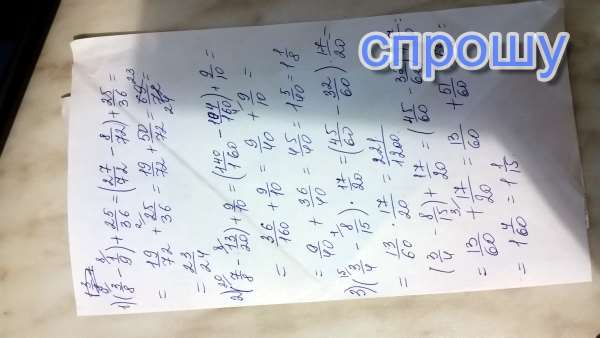 спрошу
1) (3/8 - 1/9) + 25/36 = (27/72 - 8/72) + 25/36 =
= 19/72 + 25/36 = 19/72 + 50/72 = 69/72 =
= 23/24
2) (7/8 - 13/20) + 9/10 = (140/160 - 104/160) + 9/10 =
= 36/160 + 9/10 = 9/40 + 9/10 =
= 9/40 + 36/40 = 45/40 = 1 5/40 = 1 1/8
3) (3/4 - 8/15) · 17/20 = (45/60 - 32/60) · 17/20 =
= 13/60 · 17/20 = 221/1200
(3/4 - 8/15) + 17/20 = (45/60 -
= 13/60 + 17/20 = 13/60 + 51/60 =
= 1 4/60 = 1 1/15